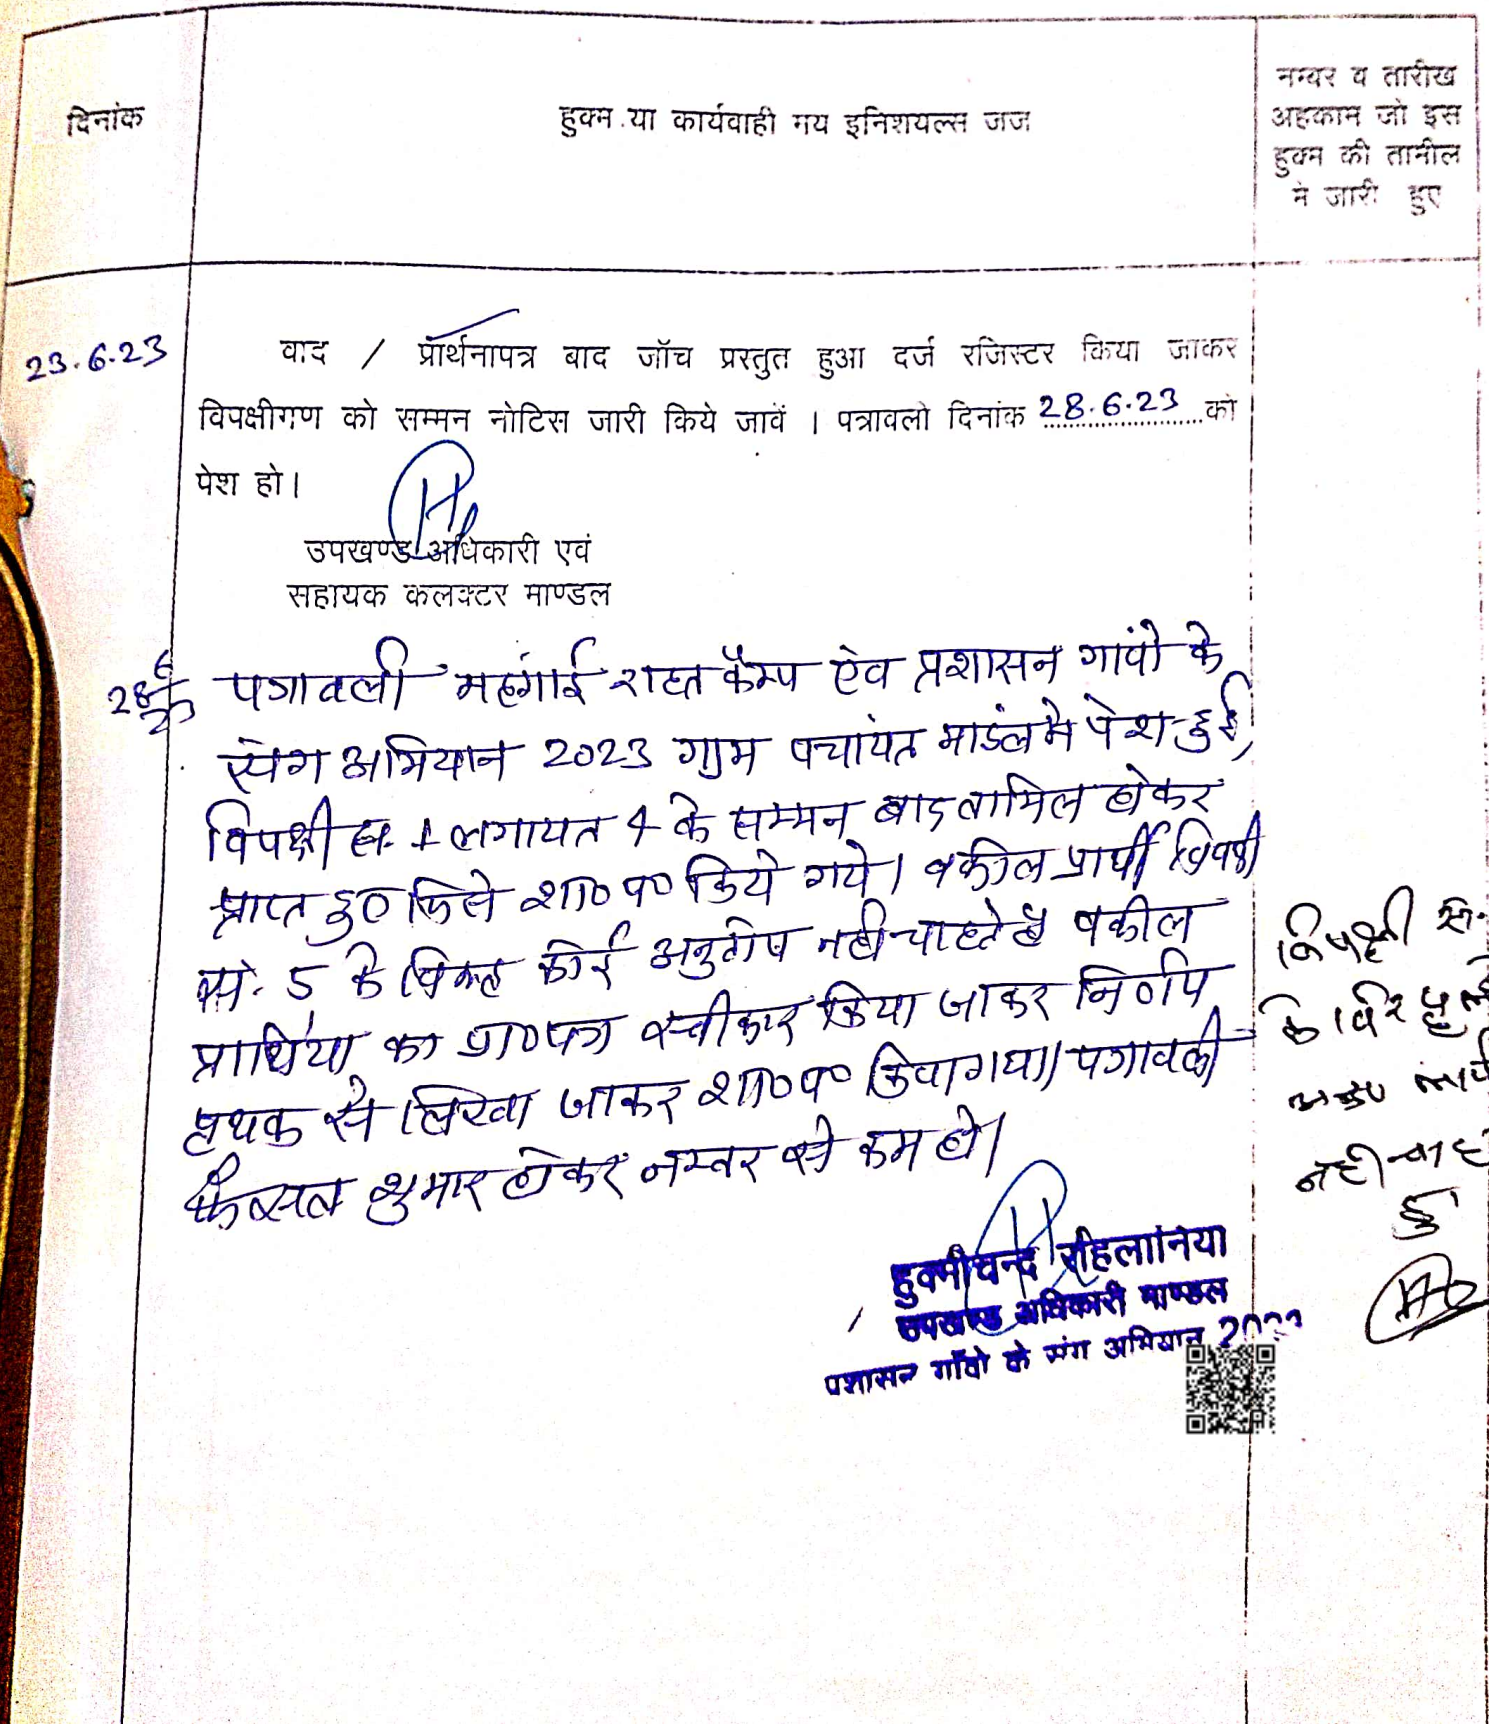 दिनांक
हुक्म या कार्यवाही मय इनिशयल्स जज
नम्बर व तारीख
अहकाम जो इस
हुक्म की तामील
मे जारी हुए
23.6.23
वाद / प्रार्थनापत्र बाद जॉच प्रस्तुत हुआ दर्ज रजिस्टर किया जाकर
विपक्षीगण को सम्मन नोटिस जारी किये जावें । पत्रावली दिनांक 28.6.23 को
पेश हो।
उपखण्ड अधिकारी एवं
सहायक कलक्टर माण्डल
28/6/23
पत्रावली महंगाई राहत कैम्प ऐव प्रशासन गांवो के
संग अभियान 2023 ग्राम पचांयत माडंल मे पेश हुई,
विपक्षी सं. 1 लगायत 4 के सम्मन बाद तामिल होकर
प्राप्त हुए जिसे शा०प० किये गये। वकील प्रार्थी विपक्षी
सं. 5 के विरूद्ध कोई अनुतोष नही चाहते है वकील
प्रार्थिया का प्रा०पत्र स्वीकार किया जाकर निर्णय
पृथक से लिखा जाकर शा०प० किया गया। पत्रावली
फैसल शुमार होकर नम्बर से कम हो।
विपक्षी सं.
के विरुद्ध
नही चाह
हुक्मीचन्द रोहिलानिया
उपखण्ड अधिकारी माण्डल
प्रशासन गाँवो के संग अभियान 2023